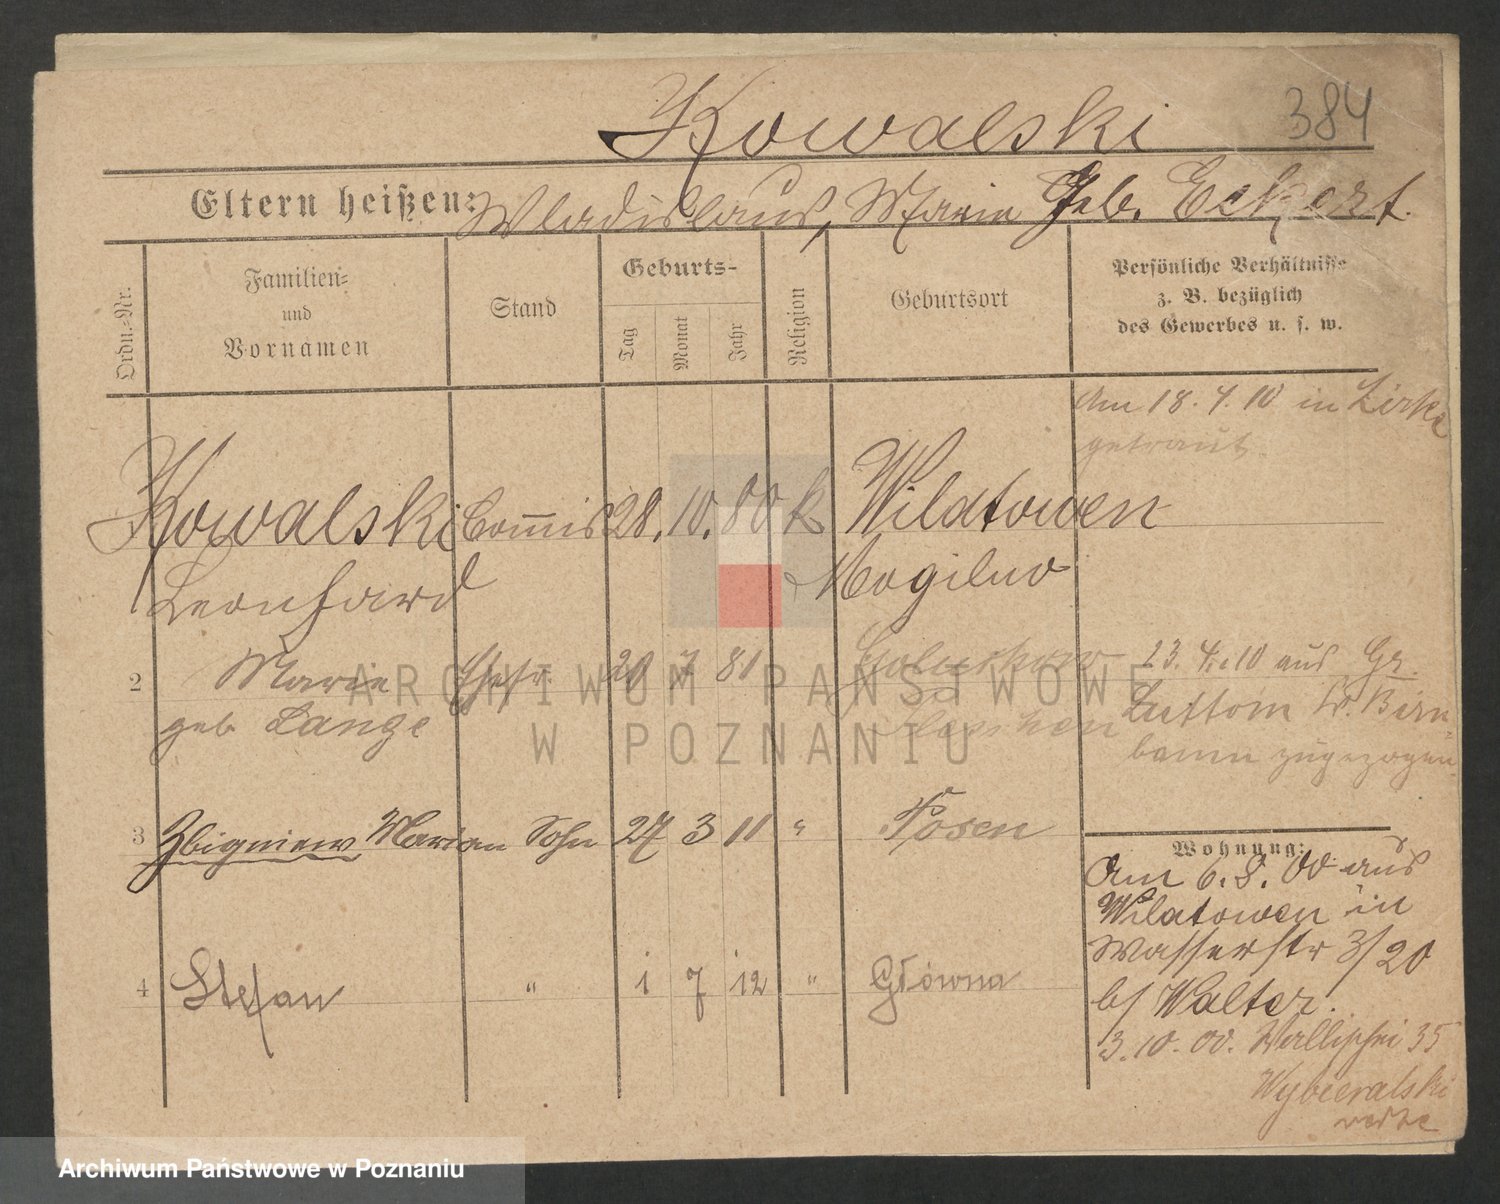 Kowalski 384
Eltern heißen: Wladislaus, Marie Geb. Eckert.
Ordn.-Nr.
Familien-
und
Vornamen
Stand
Geburts-
Tag
Monat
Jahr
Religion
Geburtsort
Persönliche Verhältnisse
z. B. bezüglich
des Gewerbes u. s. w.
Am 18. 4. 10 in Zirke
getraut.
Kowalski Com̄is 28. 10. 80 k Wilatowen
Leonhard Mogilno
2 Marie Ehefr. 20 7 81
geb. Lange
23. 4. 10 aus Gr.
Luttom Kr. Birn-
baum zugezogen.
3 Zbigniew Marian Sohn 27 3 11 " Posen
4 Stefan " 1 7 12 " Główna
Wohnung:
Am 6. 8. 00 aus
Wilatowen in
Wasserstr 3/20
b/ Walter.
3. 10. 00. Wallischei 35
ARCHIWUM PAŃSTWOWE
W POZNANIU
Archiwum Państwowe w Poznaniu